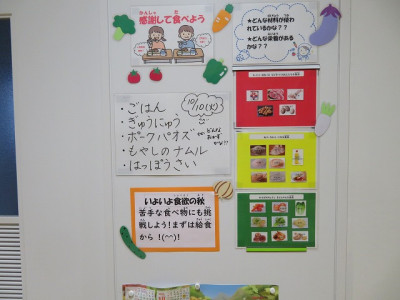 感謝して食べよう
かんしゃ
た
★どんな材料が使わ
れているかな？？
★どんな栄養がある
かな？？
10/10(火)
・ごはん
・ぎゅうにゅう
・ポークパオズ
どんな
おかず
かな!?
・もやしのナムル
・はっぽうさい
いよいよ食欲の秋
苦手な食べ物にも挑
戦しよう！まずは給食
から！(^^)!